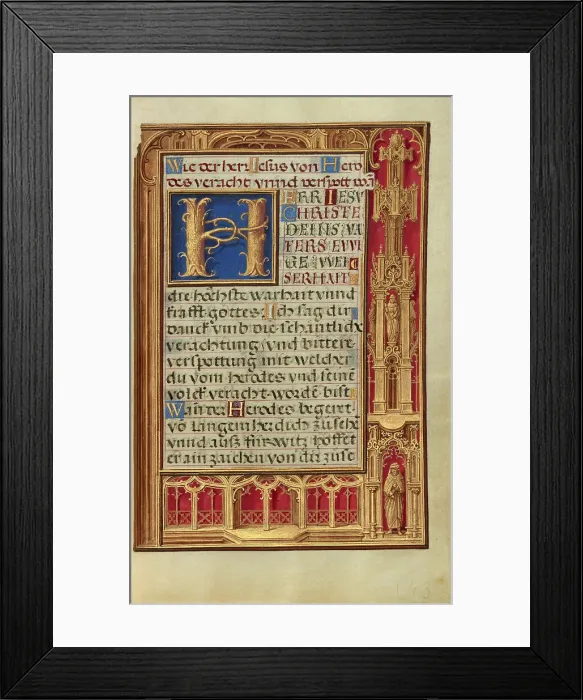 Wie der herr Iesus von Hero
des veracht vnnd verspott wardt
HERR IESV
CHRISTE
DEINS VA
TERS EWI
GE WEI
SERHAIT
die höchste warhait vnnd
krafft gottes: Ich sag dir
danck vmb die schantlich
verachtung vnd bittere
verspottung mit welcher
du vom herodes vnd seinē
volck veracht wordē bist
Wan der Herodes begert
vō langem her dich zu sehē
vnnd auß fürwitz hoffet
er ain zaichen von dir zuse